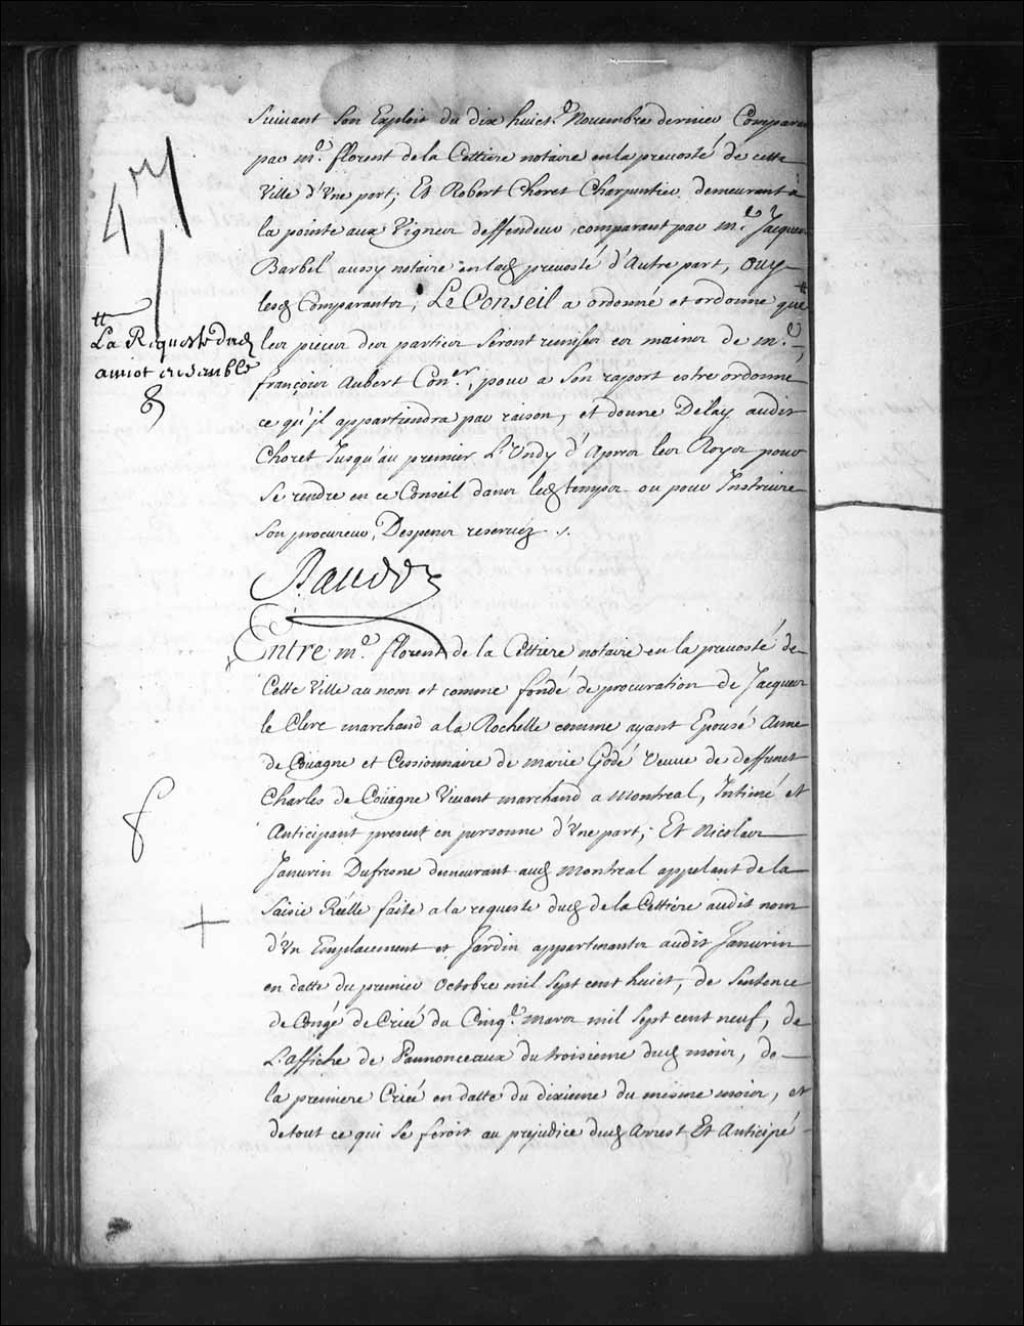 suivant son Exploit du dix huict.e Novembre dernier Comparan
par m.e florent de la Cettiere notaire en la prevosté de cette
Ville d'Une part; Et Robert Choret Charpentier demeurant a
la pointe aux Vigneux deffendeur comparant par m.e Jacques
Barbel aussy notaire en lad prevosté d'Autre part, ouy
lesd Comparants, Le Conseil a ordonné et ordonne que
les pieces des parties seront remises es mains de m.e
françois Aubert Con.er, pour a son raport estre ordonné
ce qu'il appartiendra par raison, et donne Delay audit
Choret Jusqu'au premier L'Undy d'Apres les Roys pour
se rendre en ce Conseil dans led temps ou pour Instruire
son procureur, Despens reservez ./.
47
La Requeste dud
amiot
Raudot
Entre m.e florent de la Cettiere notaire en la prevosté de
Cette Ville au nom et comme fondé de procuration de Jacques
le Clerc marchand a la Rochelle comme ayant Epousé Anne
de Coüagne et Cessionnaire de marie Godé Veuve de deffunct
Charles de Coüagne Vivant marchand a Montreal, Intimé et
Anticipant present en personne d'Une part; Et Nicolas
Janvrin Dufresne demeurant aud Montreal appelant de la
Saisie Réelle faite a la requeste dud de la Cettiere audit nom
d'Un Emplacement et Jardin appartenants audit Janvrin
en datte du premier Octobre mil sept cent huict, de Sentence
de Congé de Criée du Cinq.e mars mil sept cent neuf, de
L'affiche de Pannonceaux du troisieme dud mois, de
la premiere Criée en datte du dixieme du mesme mois, et
de tout ce qui se seroit au prejudice dud Arrest Et Anticipé